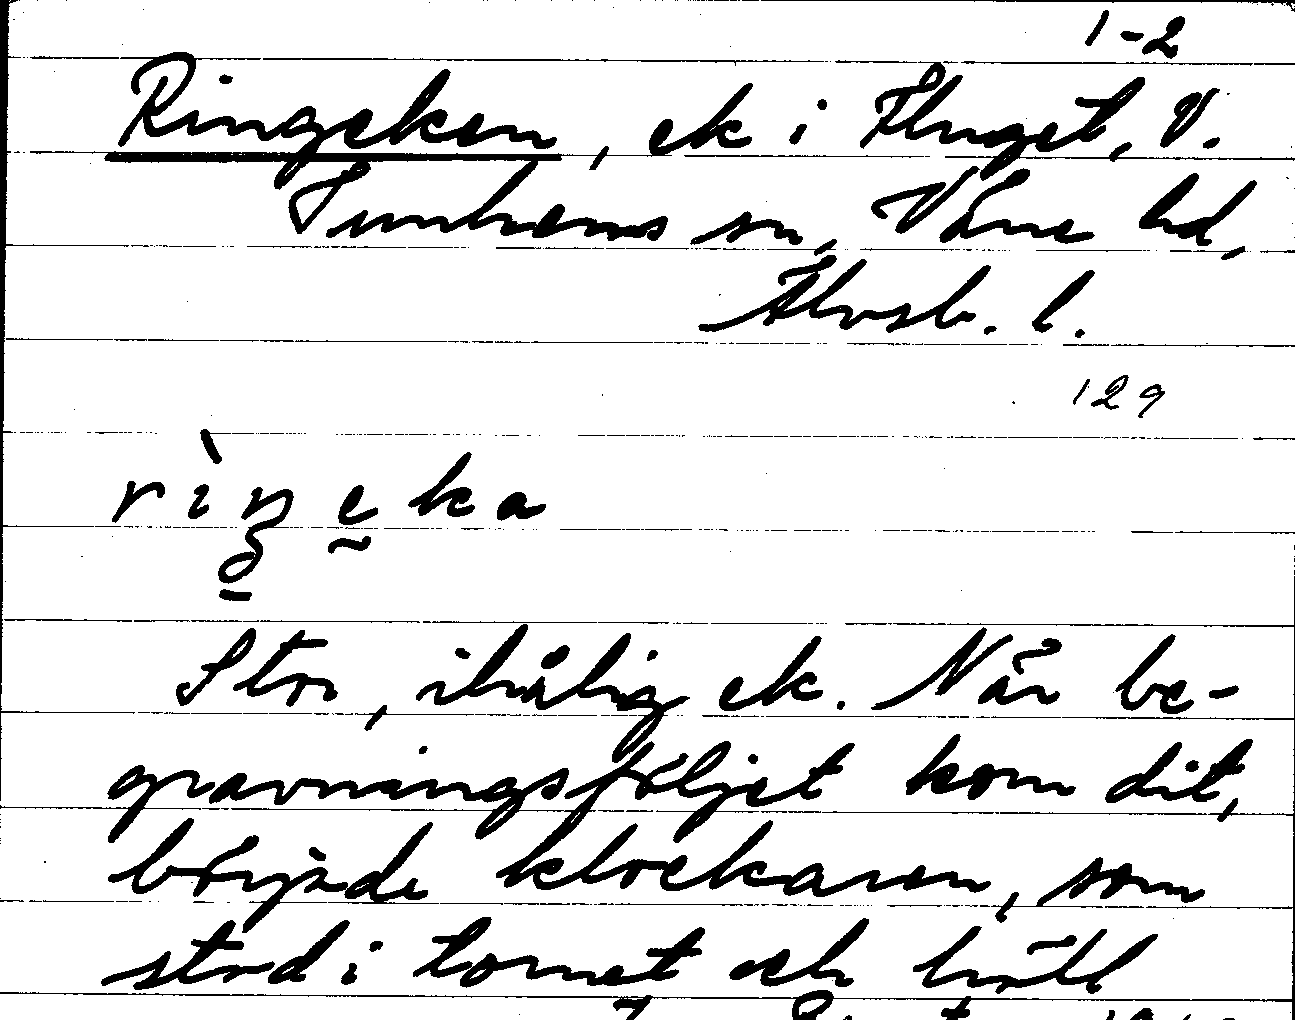 1-2
Ringeken, ek i Huget, V.
Tunhems sn, Väne hd,
Älvsb. l.
129
rìŋeka
Stor, ihålig ek. När be-
gravningsföljet kom dit,
började klockaren, som
stod i tornet och höll